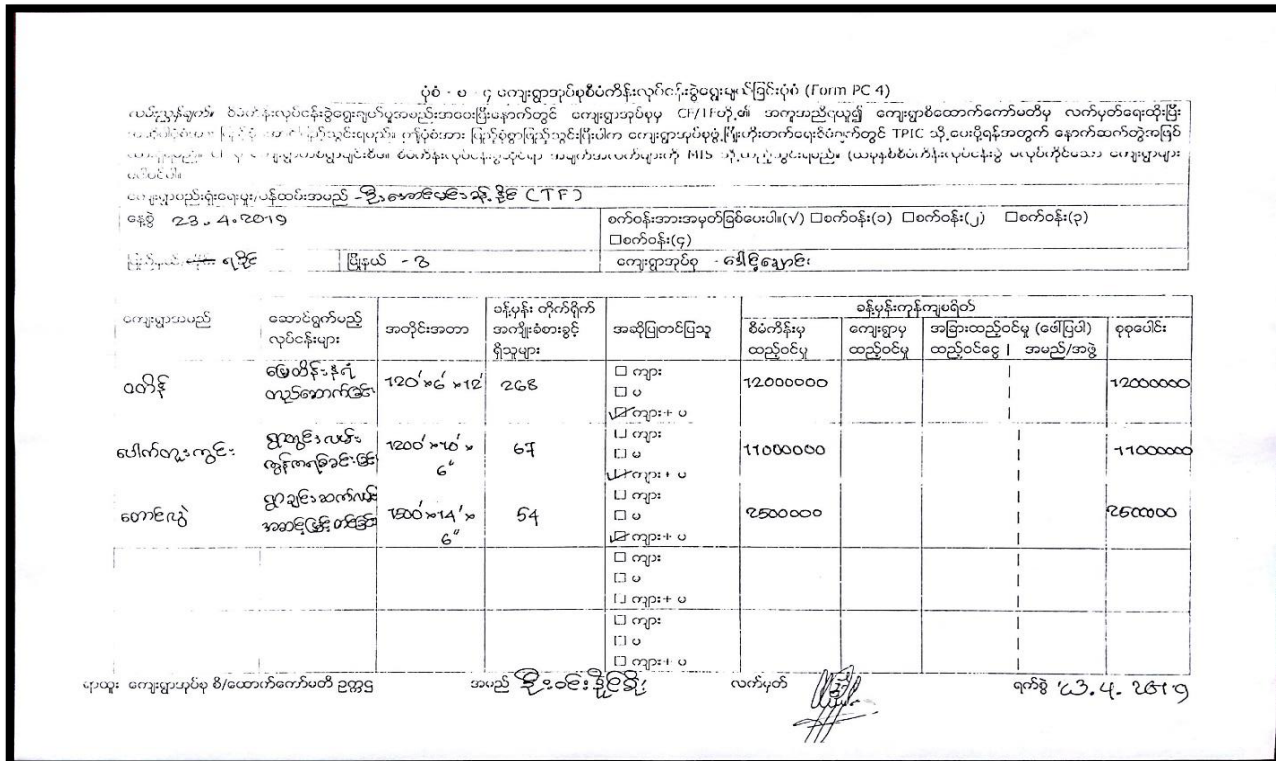 ပုံစံ - ပ - ၄ ကျေးရွာအုပ်စုစီမံကိန်းလုပ်ငန်းခွဲရွေးချယ်ခြင်းပုံစံ (Form PC 4)
လမ်းညွှန်ချက်။ စီမံကိန်းလုပ်ငန်းခွဲရွေးချယ်မှုအစည်းအဝေးပြီးနောက်တွင် ကျေးရွာအုပ်စုမှ CF/TFတို့၏ အကူအညီရယူ၍ ကျေးရွာစီထောက်ကော်မတီမှ လက်မှတ်ရေးထိုးပြီး
ဤပုံစံအား ပြည့်စုံစွာဖြည့်သွင်းပြီးပါက ကျေးရွာအုပ်စုဖွံ့ဖြိုးတိုးတက်ရေးစီမံချက်တွင် TPIC သို့ ပေးပို့ရန်အတွက် နောက်ဆက်တွဲအဖြစ်
စီမံကိန်းလုပ်ငန်းခွဲဆိုင်ရာ အချက်အလက်များကို MIS သို့ ထည့်သွင်းရမည်။ (ယခုနှစ်စီမံကိန်းလုပ်ငန်းခွဲ မလုပ်ကိုင်သော ကျေးရွာများ
ကျေးရွာစည်းရုံးရေးမှူး/ပန်ထမ်းအမည် - (CTF)
နေ့စွဲ 23.4.2019 စက်ဝန်းအားအမှတ်ခြစ်ပေးပါ။(√) □စက်ဝန်း(၁) □စက်ဝန်း(၂) □စက်ဝန်း(၃)
□စက်ဝန်း(၄)
ပြည်နယ်/တိုင်း ရခိုင် မြို့နယ် - ကျေးရွာအုပ်စု -
ကျေးရွာအမည် ဆောင်ရွက်မည့် လုပ်ငန်းများ အတိုင်းအတာ ခန့်မှန်း တိုက်ရိုက် အကျိုးခံစားခွင့် ရှိသူများ အဆိုပြုတင်ပြသူ ခန့်မှန်းကုန်ကျစရိတ်
စီမံကိန်းမှ ထည့်ဝင်မှု ကျေးရွာမှ ထည့်ဝင်မှု အခြားထည့်ဝင်မှု (ဖေါ်ပြပါ) ထည့်ဝင်ငွေ | အမည်/အဖွဲ့ စုစုပေါင်း
ဝတိန် မြေထိန်းနံရံ တည်ဆောက်ခြင်း 120'×6'×12' 268 □ ကျား □ မ ☑ ကျား + မ 12000000 12000000
ပေါက်တူးကွင်း ရွာတွင်းလမ်း ကွန်ကရစ်ခင်းခြင်း 1200'×10'×6" 67 □ ကျား □ မ ☑ ကျား + မ 11000000 11000000
ရွာချင်းဆက်လမ်း အဆင့်မြှင့်တင်ခြင်း 1500'×14'×6" 54 □ ကျား □ မ ☑ ကျား + မ 2500000 2500000
□ ကျား
□ မ
□ ကျား + မ
□ ကျား
□ မ
□ ကျား + မ
ရာထူး ကျေးရွာအုပ်စု စီ/ထောက်ကော်မတီ ဥက္ကဋ္ဌ အမည် လက်မှတ် ရက်စွဲ 23.4.2019